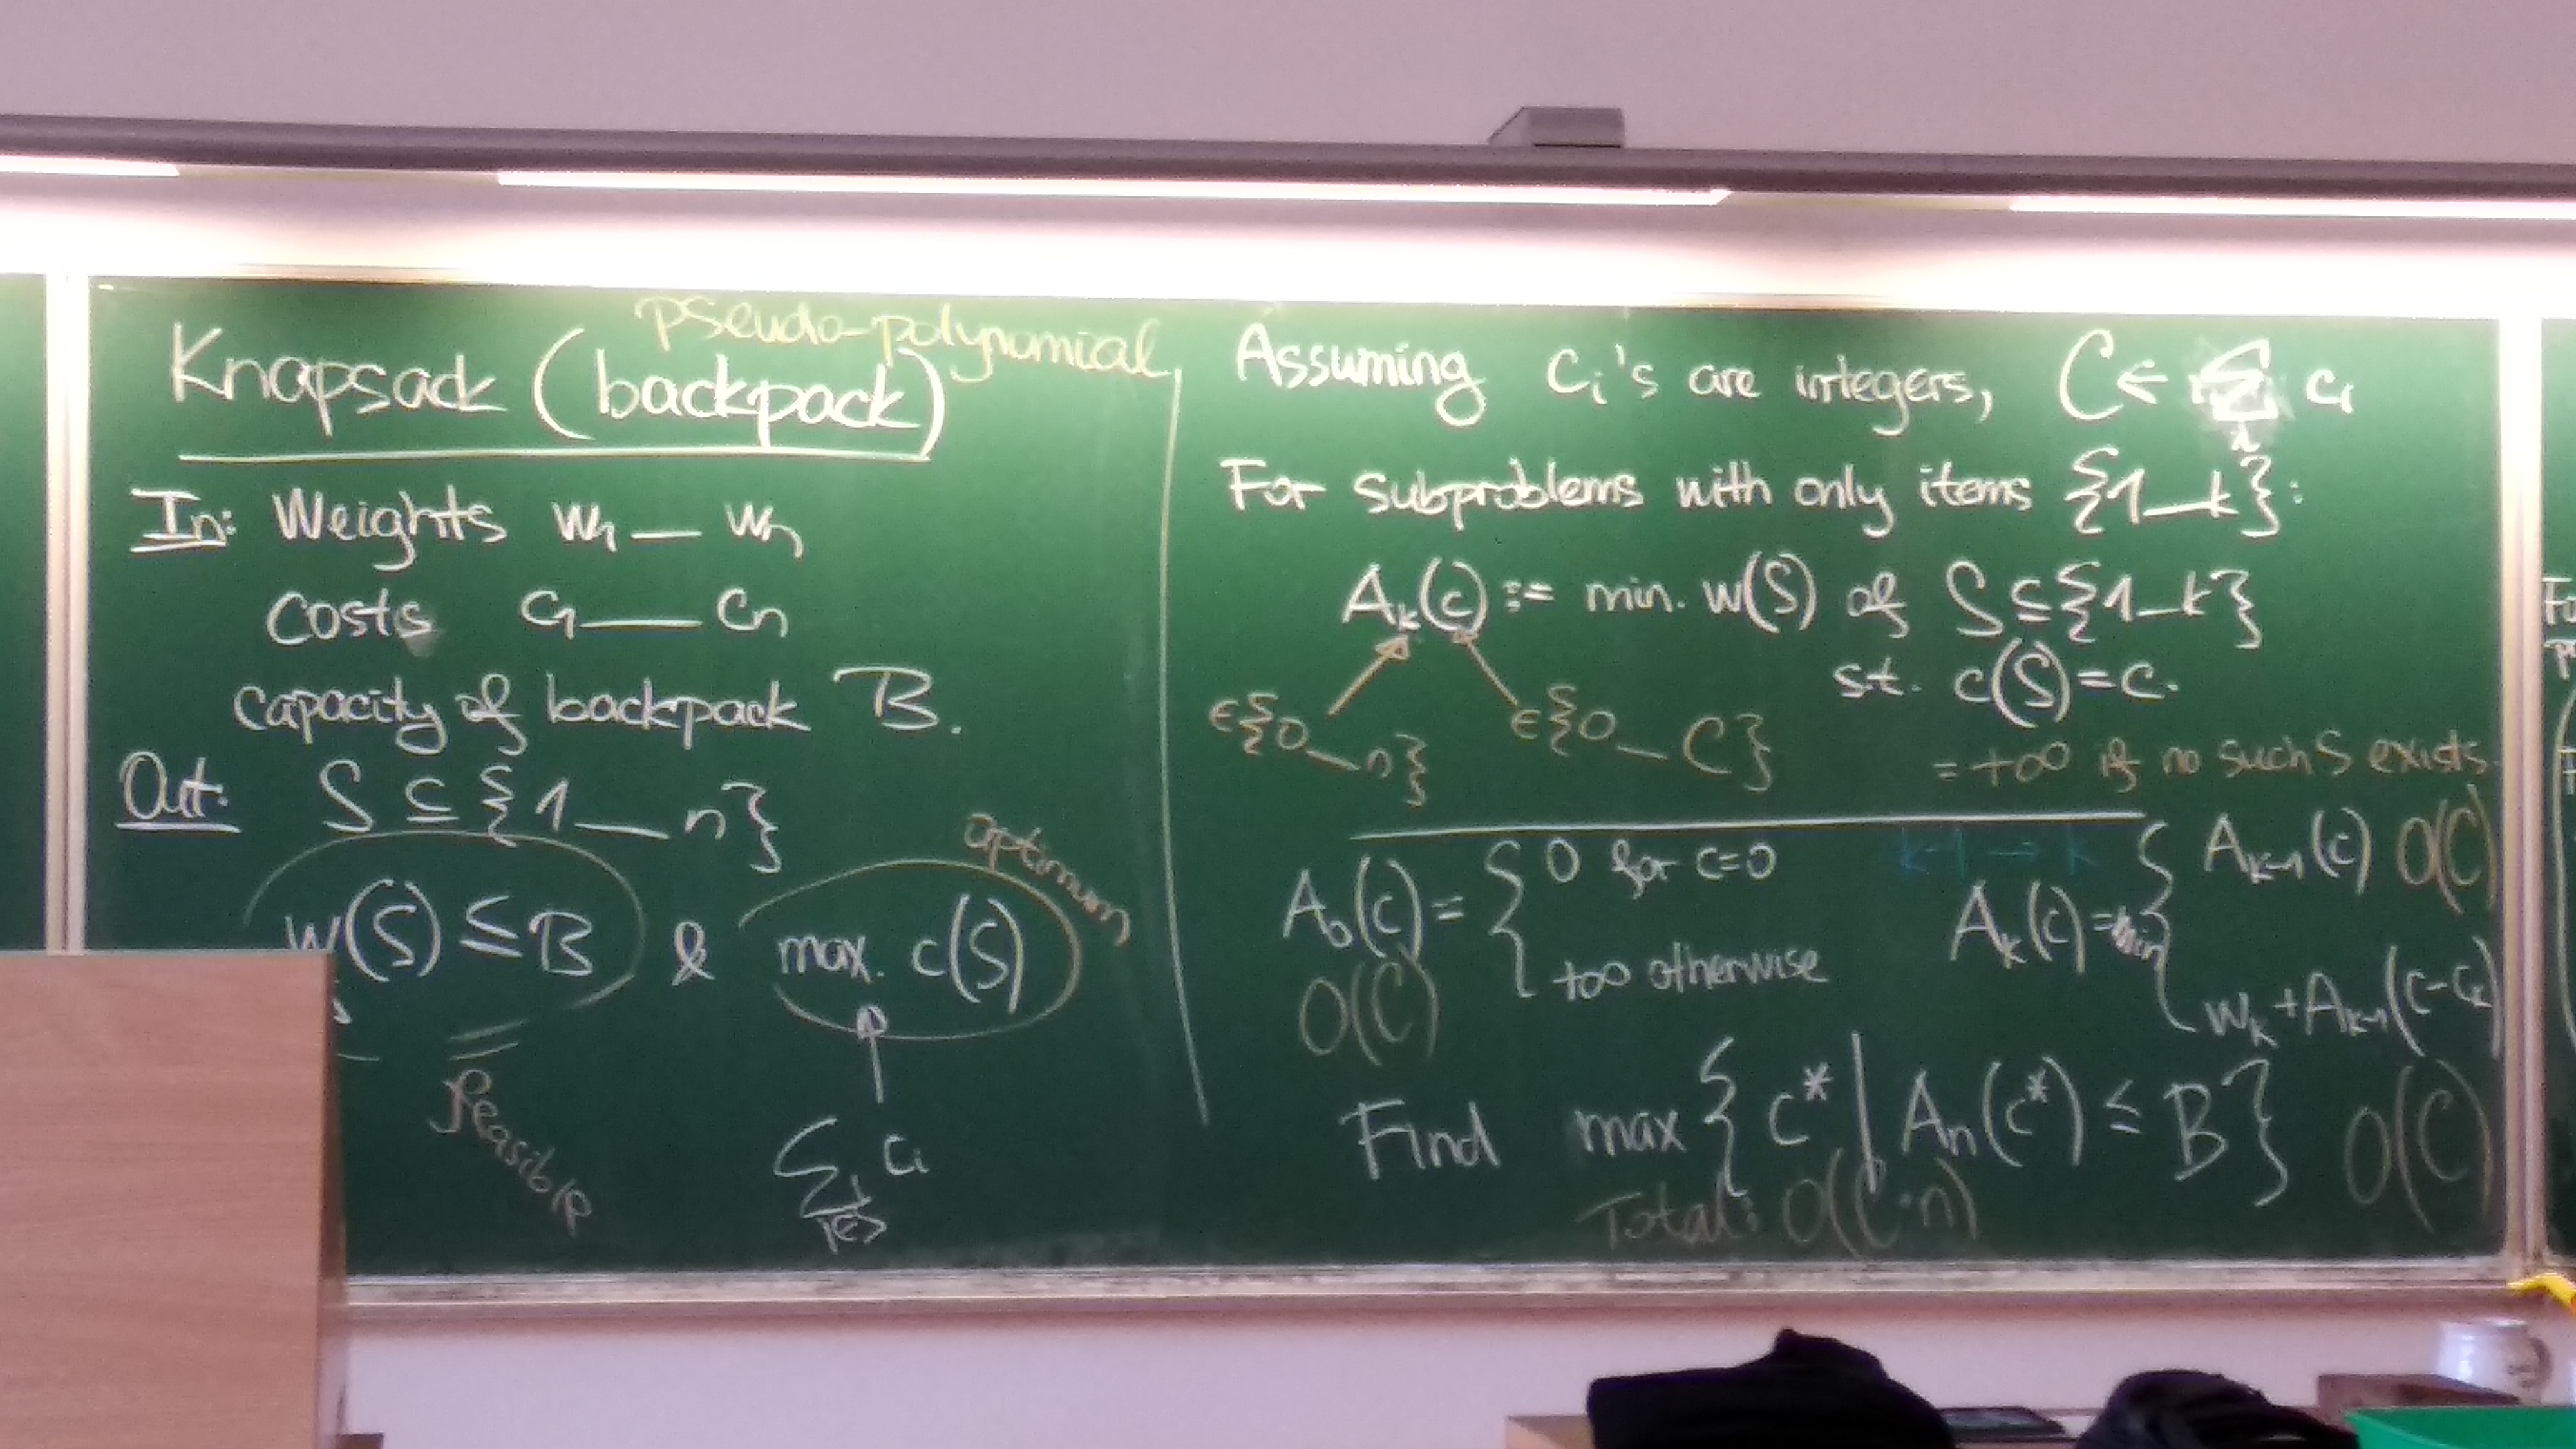 pseudo-polynomial
Knapsack (backpack)
In: Weights w₁ — wₙ
Costs c₁ — cₙ
capacity of backpack B.
Out: S ⊆ {1 — n}
w(S) ≤ B & max. c(S)
optimum
feasible
∑ cᵢ
i∈S
Assuming cᵢ's are integers, C ← ∑ cᵢ
i
For subproblems with only items {1 — k}:
Aₖ(c) := min. w(S) of S ⊆ {1 — k}
s.t. c(S) = c.
∈{0 — n} ∈{0 — C}
= +∞ if no such S exists
A₀(c) = { 0 for c=0
+∞ otherwise
O(C)
k-1 → k
Aₖ(c) = min { Aₖ₋₁(c) O(C)
wₖ + Aₖ₋₁(c-cₖ)
Find max { c* | Aₙ(c*) ≤ B } O(C)
Total: O(C·n)